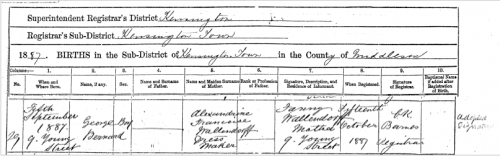 Superintendent Registrar's District Kensington
Registrar's Sub-District Kensington Town
1887. BIRTHS in the Sub-District of Kensington Town in the County of Middlesex
Columns:— 1. 2. 3. 4. 5. 6. 7. 8. 9. 10.
No. When and Where Born. Name, if any. Sex. Name and Surname of Father. Name and Maiden Surname of Mother. Rank or Profession of Father. Signature, Description, and Residence of Informant. When Registered. Signature of Registrar. Baptismal Name if added after Registration of Birth.
Fifth September 1887. 9. Young Street
George Bernard
Boy
Alexandrine Francoise Wallendorff Dress Maker
Fanny Wallendorff Mother 9. Young Street
Fifteenth October 1887
CK Barnes Registrar